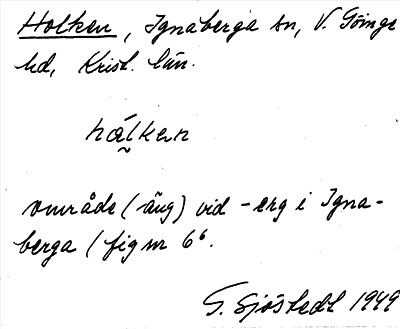 Holken, Ignaberga sn, V. Göinge
hd, Krist. län.
hålken
område (äng) vid -erg i Igna-
berga (fig nr 6⁶.
G. Sjöstedt 1949